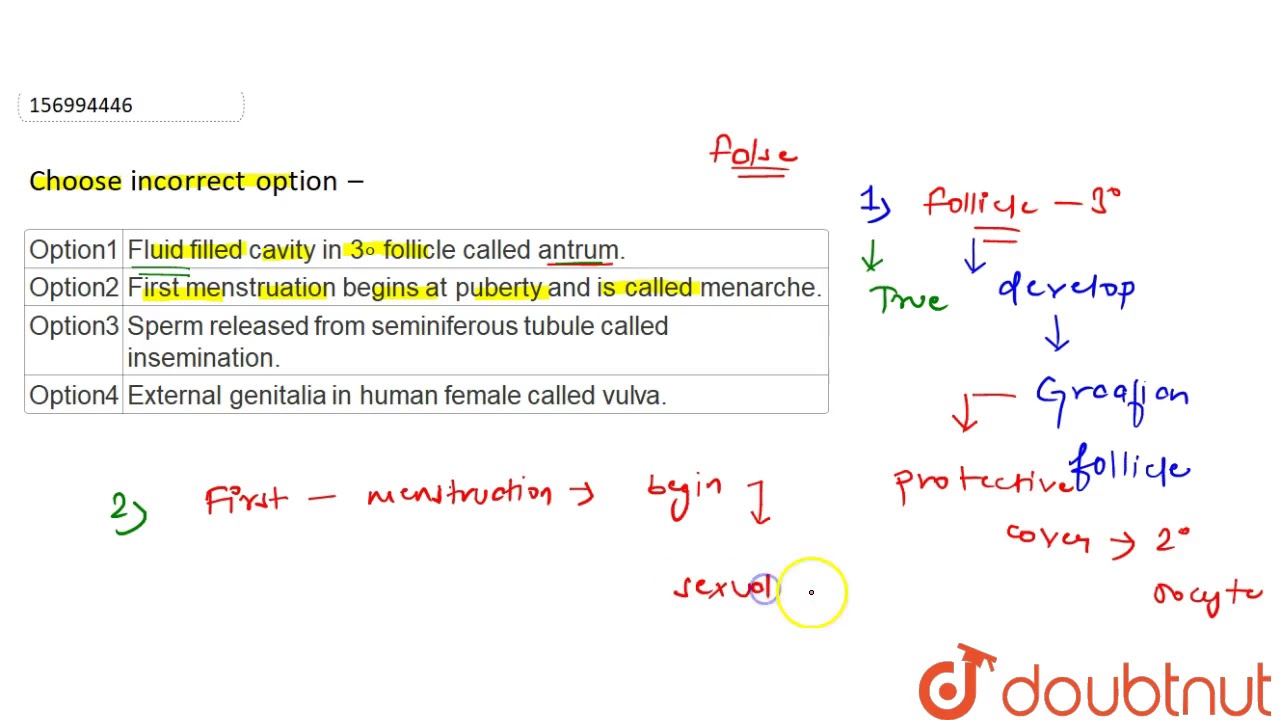 156994446
false
Choose incorrect option –
Option1 Fluid filled cavity in 3° follicle called antrum.
Option2 First menstruation begins at puberty and is called menarche.
Option3 Sperm released from seminiferous tubule called
insemination.
Option4 External genitalia in human female called vulva.
1) follicle – 3°
↓ ↓
True develop
↓
Graafian
follicle
protective
cover → 2°
oocyte
2) First – menstruction → begin
sexual
doubtnut